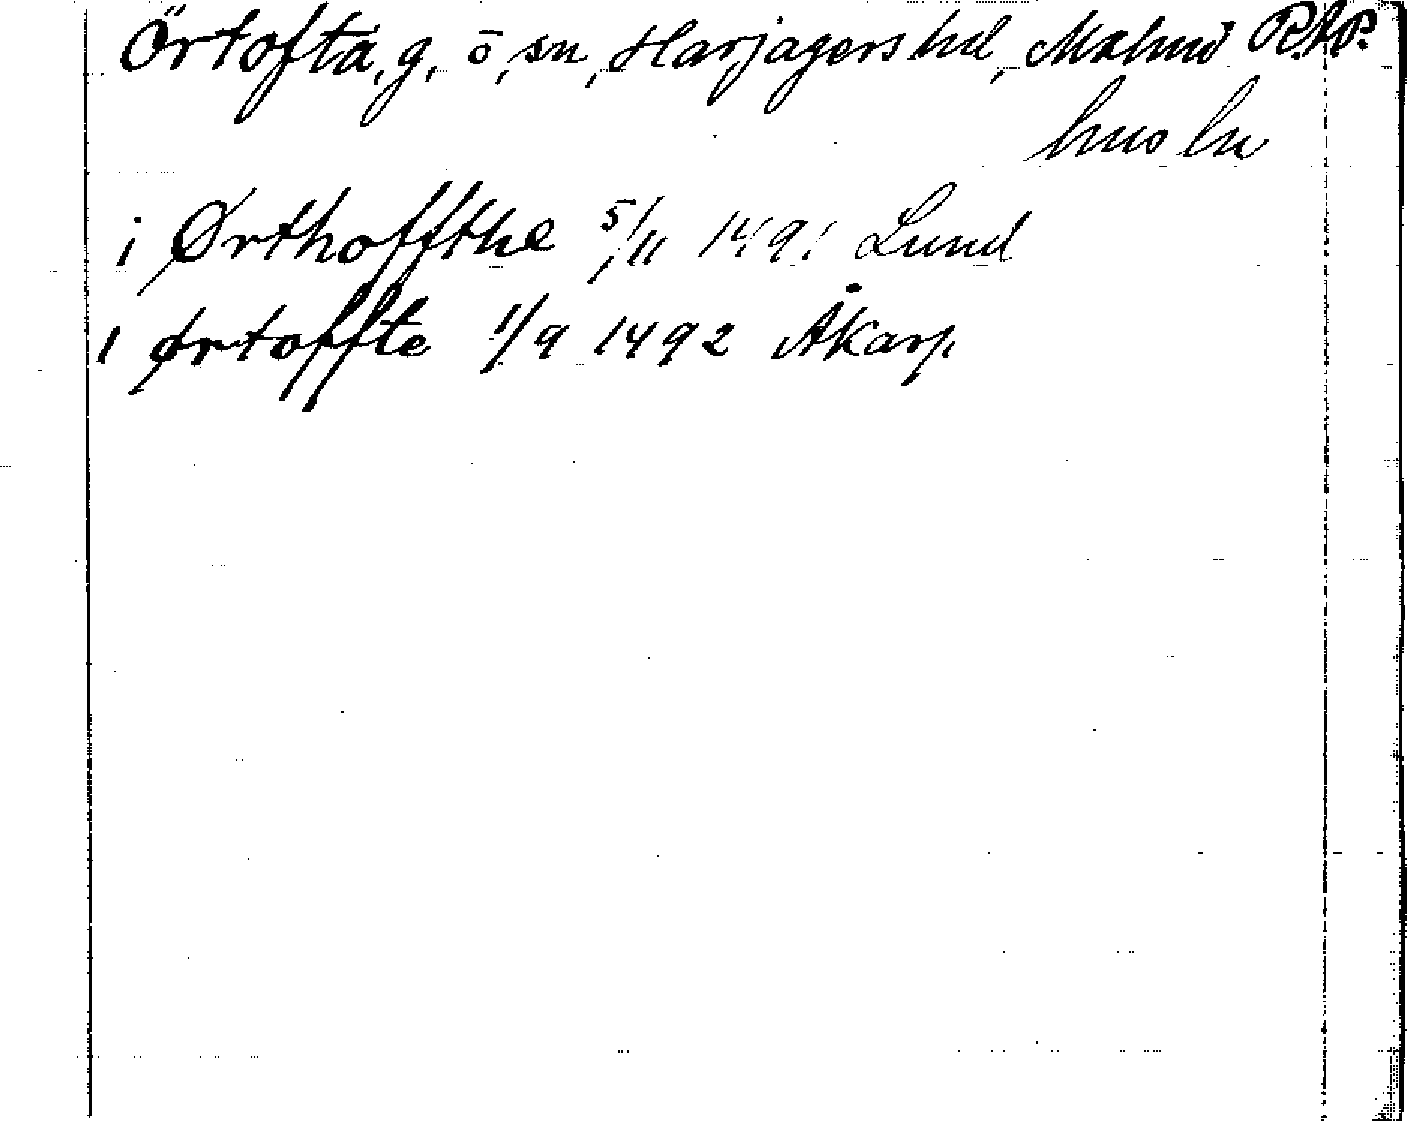 Örtofta, g, ö, sn, Harjagers hd, Malmö RAP.
hus ln
i Ørthoffthe 5/11 1491 Lund
i ørtoffte 1/9 1492 Åkarp